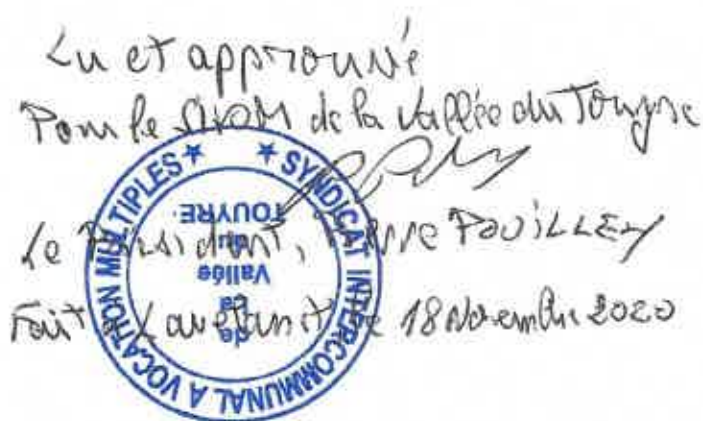 Lu et approuvé
Pour le SIVOM de la Vallée du Touyre
Le Président, Pierre POUILLEY
Fait à Lavelanet le 18 Novembre 2020
★ SYNDICAT INTERCOMMUNAL A VOCATION MULTIPLES ★
de
la
Vallée
du
TOUYRE.